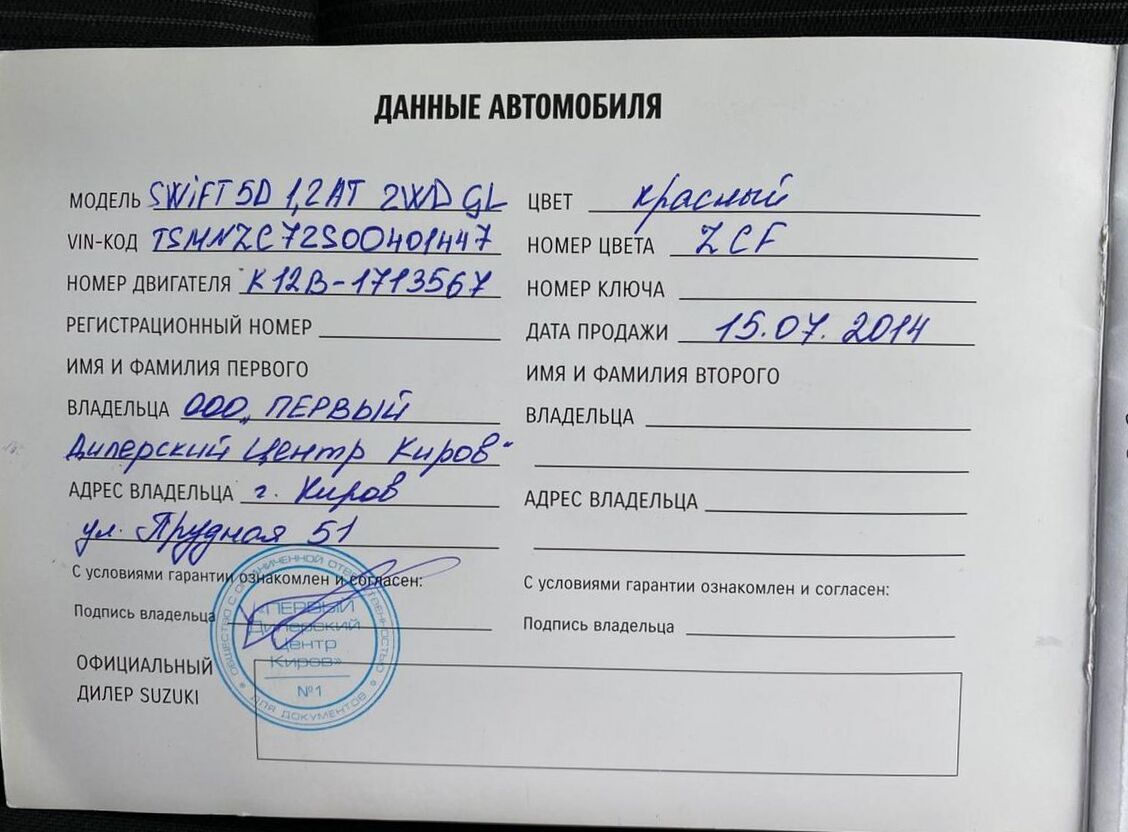 ДАННЫЕ АВТОМОБИЛЯ
МОДЕЛЬ SWIFT 5D 1,2AT 2WD GL
VIN-КОД TSMNZC72S00401447
НОМЕР ДВИГАТЕЛЯ K12B-1713567
РЕГИСТРАЦИОННЫЙ НОМЕР
ИМЯ И ФАМИЛИЯ ПЕРВОГО
ВЛАДЕЛЬЦА ООО „ПЕРВЫЙ
Дилерский Центр Киров"
АДРЕС ВЛАДЕЛЬЦА г. Киров
ул. Прудная 51
С условиями гарантии ознакомлен и согласен:
Подпись владельца
ЦВЕТ красный
НОМЕР ЦВЕТА ZCF
НОМЕР КЛЮЧА
ДАТА ПРОДАЖИ 15.07.2014
ИМЯ И ФАМИЛИЯ ВТОРОГО
ВЛАДЕЛЬЦА
АДРЕС ВЛАДЕЛЬЦА
С условиями гарантии ознакомлен и согласен:
Подпись владельца
ОФИЦИАЛЬНЫЙ
ДИЛЕР SUZUKI
ОБЩЕСТВО С ОГРАНИЧЕННОЙ ОТВЕТСТВЕННОСТЬЮ
«ПЕРВЫЙ
Дилерский
Центр
Киров»
№1
ДЛЯ ДОКУМЕНТОВ